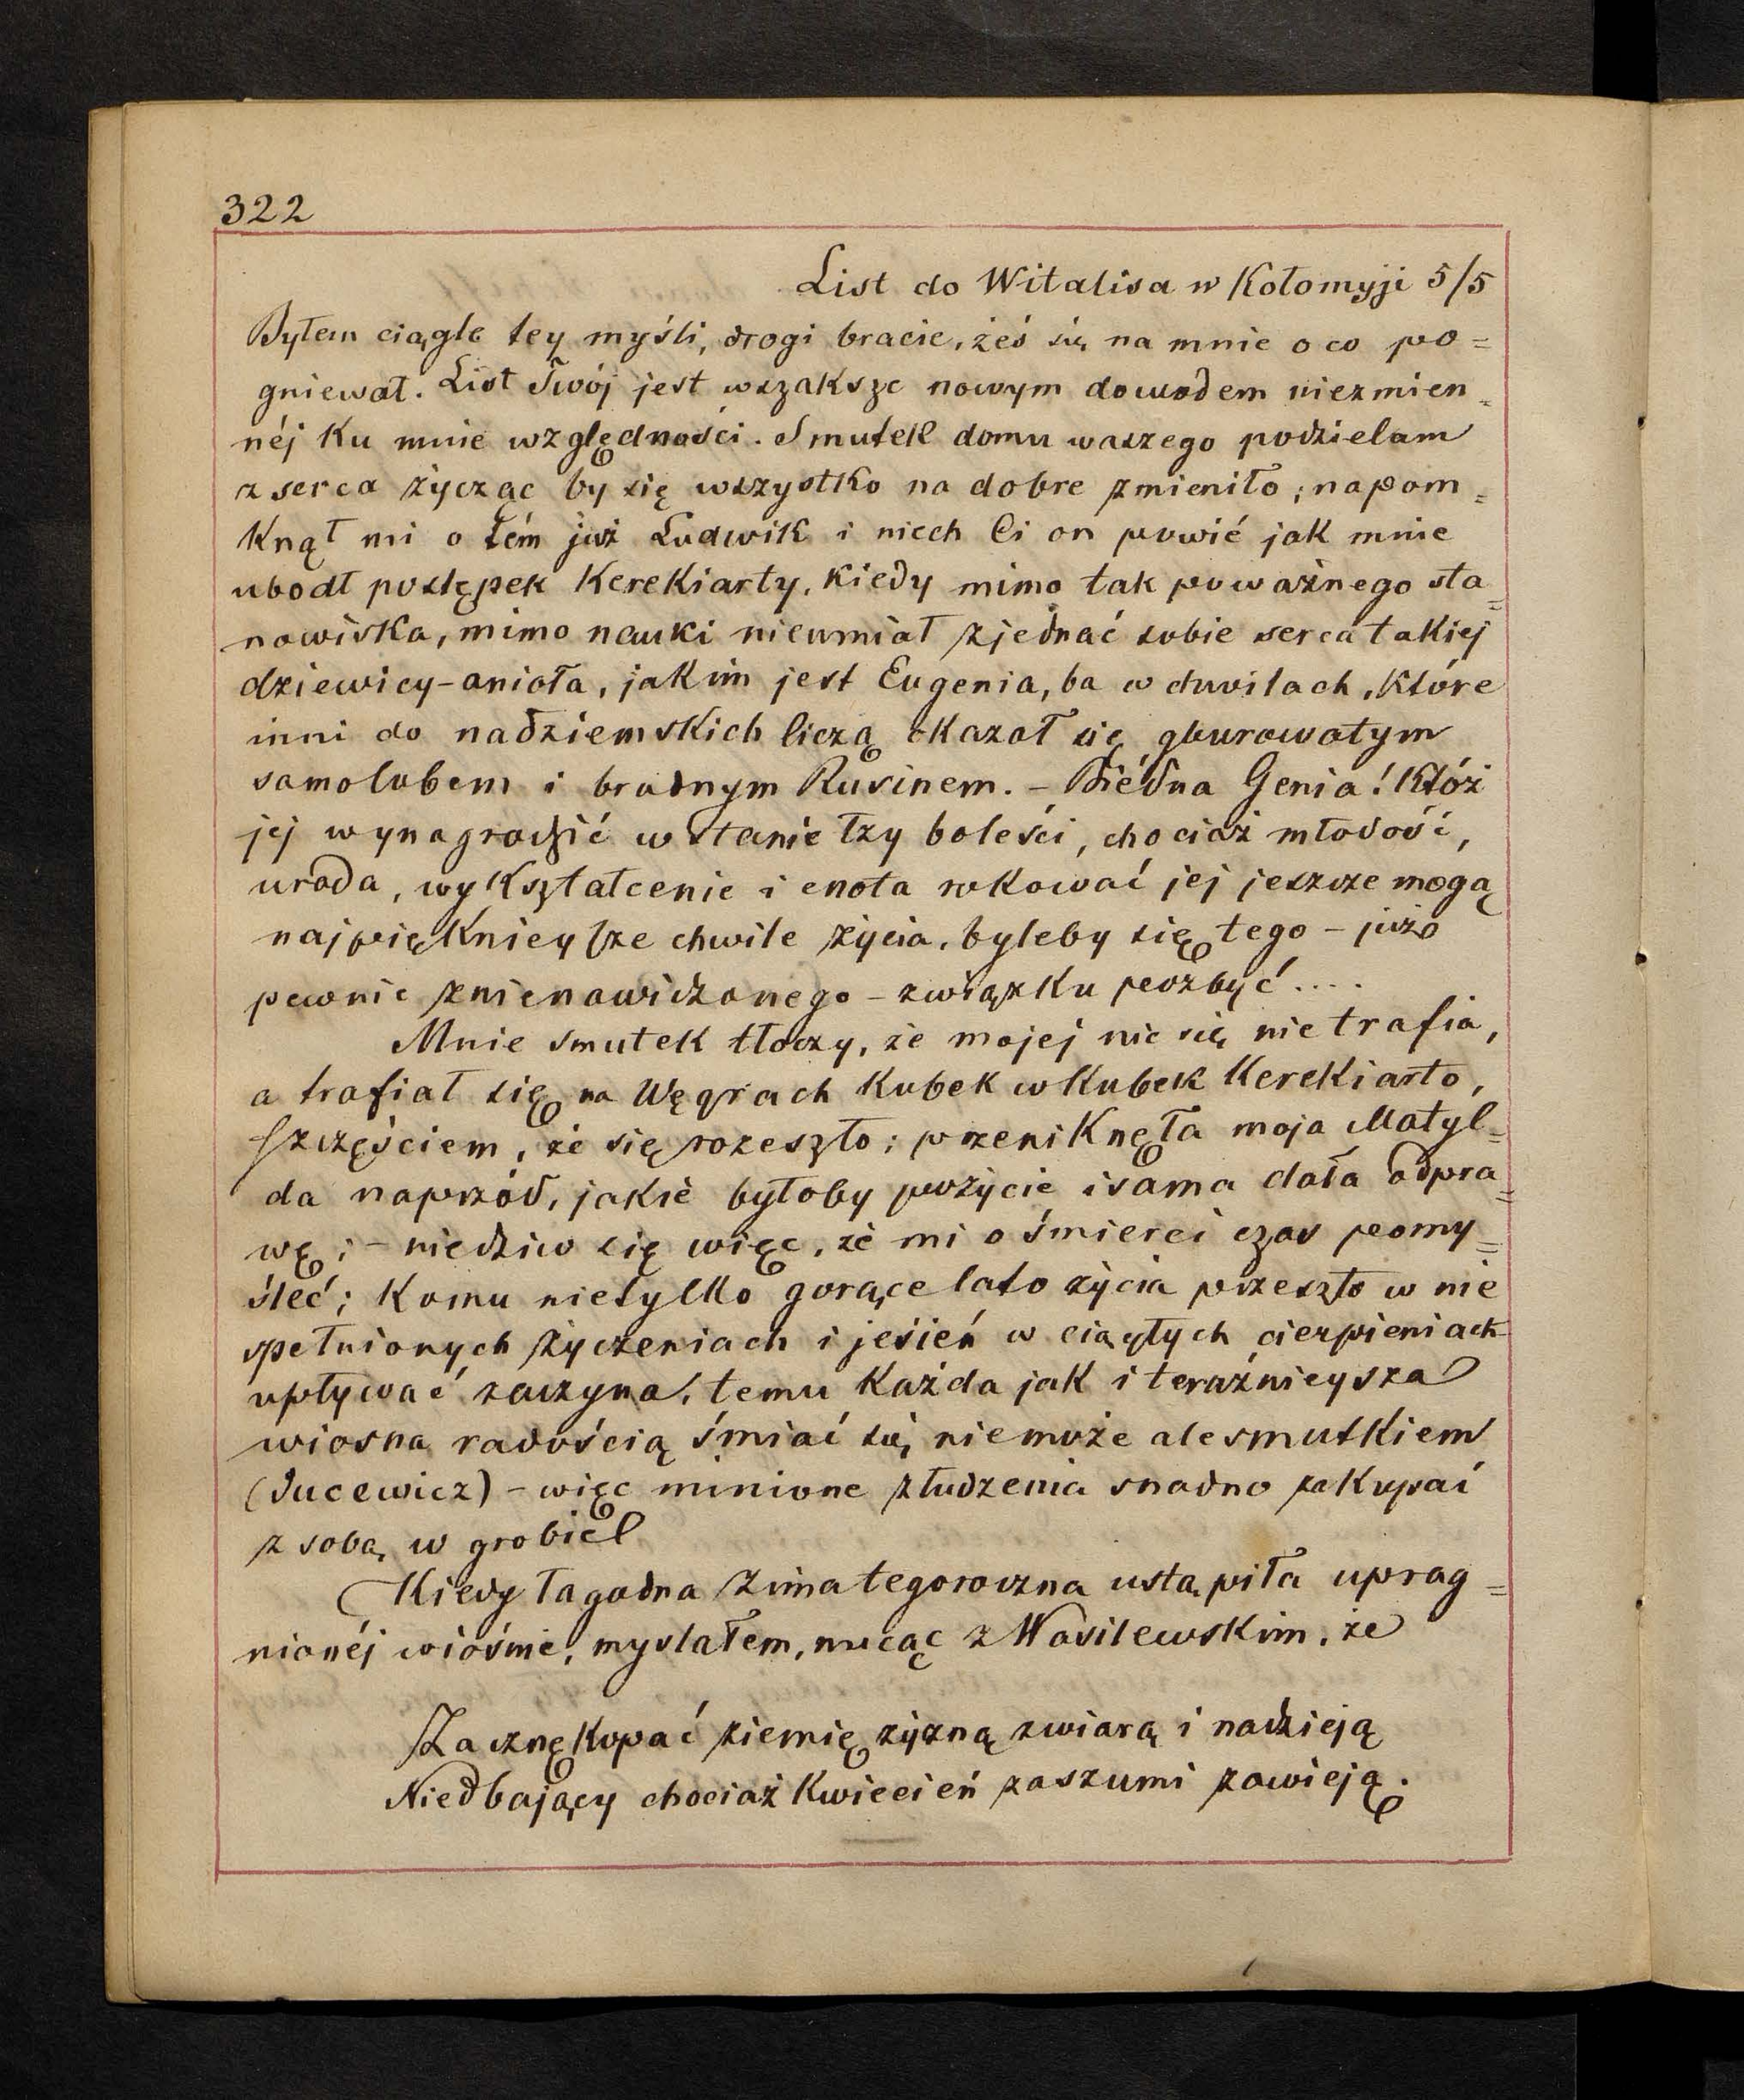 322
List do Witalisa w Kołomyji 5/5
Byłem ciągle tey myśli, drogi bracie, żeś się na mnie o co po=
gniewał. List Twój jest wszaksze nowym dowodem niezmien=
néj ku mnie względności. Smutek domu waszego podzielam
z serca życząc by się wszystko na dobre zmieniło; napom=
knął mi o tém już Ludwik i niech Ci on powié jak mnie
ubodł postępek Kerekiarty, kiedy mimo tak poważnego sta=
nowiska, mimo nauki nieumiał zjednać sobie serca takiej
dziewicy-anioła, jakim jest Eugenia, ba w chwilach, które
inni do nadziemskich liczą okazał się gburowatym
samolubem i brudnym Rusinem. - Biédna Genia! Któż
jej wynagrodzić w stanie łzy boleści, chociaż młodość,
uroda, wykształcenie i cnota rokować jej jeszcze mogą
najpięknieysze chwile życia, byleby się tego - już
pewnie znienawidzonego - związku pozbyć....
Mnie smutek tłoczy, że mojej nic się nie trafia,
a trafiał się na Węgrach kubek w kubek Kerekiarto,
szczęściem, że się rozeszło; przeniknęła moja Matyl=
da naprzód, jakie byłoby pożycie i sama dała odpra=
wę; - niedziw się więc, że mi o śmierci czas pomy=
śleć; komu nietylko gorące lato życia przeszło w nie
spełnionych życzeniach i jesień w ciągłych cierpieniach
upływać zaczyna, temu każda jak i teraźnieysza
wiosna radością śmiać się niemoże ale smutkiem
(Jucewicz) - więc minione złudzenia snadno zakupać
z sobą w grobie
Kiedy łagodna zima tegoroczna ustąpiła uprag=
nionéj wiośnie, myslałem, nucąc z Wasilewskim, że
Zacznę kopać ziemię żyzną z wiarą i nadzieją
Niedbający chociaż kwiecień zaszumi zawieją.